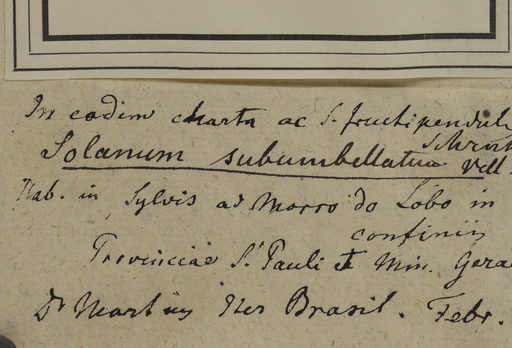 In eadem charta ac S. fructipendul
Schrank
Solanum subumbellatum Vell.
Hab. in Sylvis ad Morro do Lobo in
confiniis
Provinciae S. Pauli et Min. Gera
Dr Martius Iter Brasil. Febr.